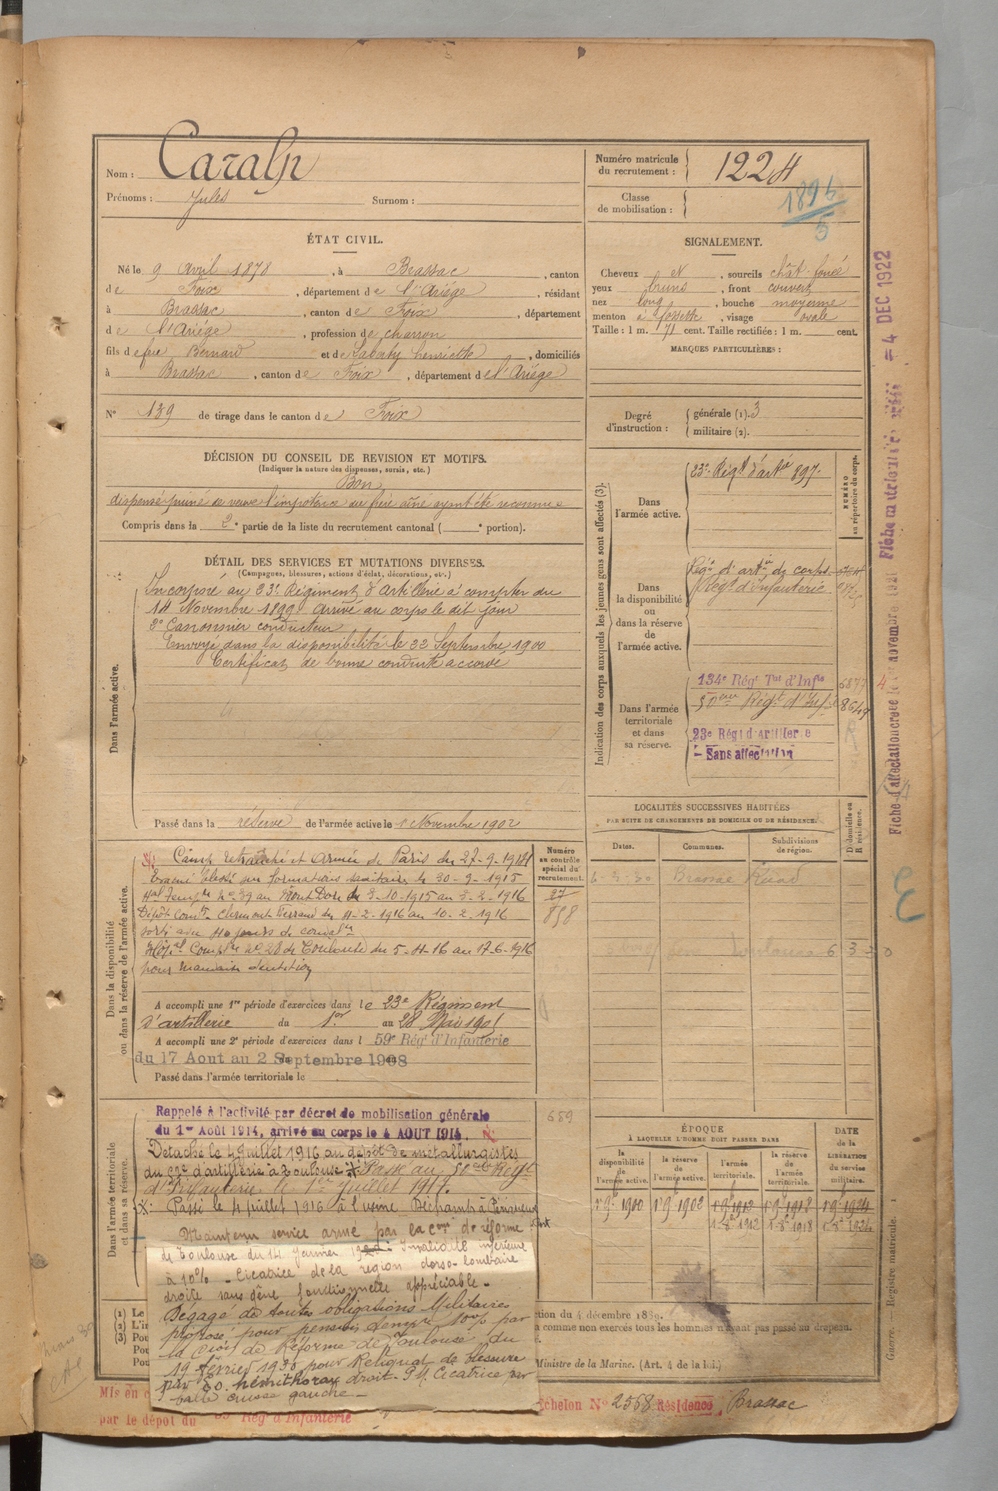 Nom : Caralp
Prénoms : Jules Surnom :
Numéro matricule du recrutement : 1224
Classe de mobilisation : 1896
5
ÉTAT CIVIL.
Né le 9 Avril 1878, à Brassac, canton
de Foix, département de l'Ariège, résidant
à Brassac, canton de Foix, département
de l'Ariège, profession de charron
fils de feu Bernard et de Henriette, domiciliés
à Brassac, canton de Foix, département de l'Ariège
N° 139 de tirage dans le canton de Foix
SIGNALEMENT.
Cheveux et, sourcils chât. foncé
yeux bruns, front couvert
nez long, bouche moyenne
menton à fossette, visage ovale
Taille : 1 m. 71 cent. Taille rectifiée : 1 m. cent.
MARQUES PARTICULIÈRES :
Degré d'instruction : générale (1). 3
militaire (2).
DÉCISION DU CONSEIL DE REVISION ET MOTIFS.
(Indiquer la nature des dispenses, sursis, etc.)
Bon
dispensé puiné de veuve l'impotence du frère aîné ayant été reconnue
Compris dans la 2e partie de la liste du recrutement cantonal ( e portion).
DÉTAIL DES SERVICES ET MUTATIONS DIVERSES.
(Campagnes, blessures, actions d'éclat, décorations, etc.)
Dans l'armée active.
Incorporé au 23e Régiment d'Artillerie à compter du
14 Novembre 1899 arrivé au corps le dit jour
2e Canonnier conducteur
Envoyé dans la disponibilité le 22 Septembre 1900
Certificat de bonne conduite accordé
Passé dans la réserve de l'armée active le 1 Novembre 1902
Dans la disponibilité ou dans la réserve de l'armée active.
Numéro au contrôle spécial du recrutement.
27
858
Camp retranché et Armée de Paris du 27-9-1914
Evacué blessé sur formations sanitaires le 30-9-1915
Hal Temp n° 39 au Mont Dore du 3-10-1915 au 3-2-1916
Dépôt Conv. Clermont Ferrand du 4-2-1916 au 10-2-1916
sorti avec 40 jours de
Hôpal Compre n° 28 de Toulouse du 5-4-16 au 17-6-1916
pour mauvaise dentition
A accompli une 1re période d'exercices dans le 23e Régiment
d'artillerie du 1er au 28 Mai 1905
A accompli une 2e période d'exercices dans l 59e Régt d'Infanterie
du 17 Aout au 2 Septembre 1908
Passé dans l'armée territoriale le
Dans l'armée territoriale et dans sa réserve.
659
Rappelé à l'activité par décret de mobilisation générale
du 1er Août 1914, arrivé au corps le 4 AOUT 1914.
Détaché le 4 Juillet 1916 au dépôt de métallurgistes
du d'artillerie à Toulouse Passé au 50me Régt
d'Infanterie le 1er Juillet 1917.
X: Passé le 4 juillet 1916 à l'usine Déchamp à
Maintenu service armé par la con de réforme
de Toulouse du 14 Janvier Invalidité inférieure
à 10% - Cicatrice de la région dorso-lombaire
droite sans gêne fonctionnelle appréciable -
Dégagé de toutes obligations Militaires
proposé pour pension 10% par
la Con de Réforme de Toulouse du
19 février 1930 pour Reliquat de blessure
par E.O. hémithorax droit. P.M. Cicatrice par
balle cuisse gauche -
Indication des corps auxquels les jeunes gens sont affectés (3).
NUMÉRO au répertoire du corps.
Dans l'armée active.
23e Régt d'artie 897
Dans la disponibilité ou dans la réserve de l'armée active.
Régt d'artie de corps
Régt d'Infanterie
Dans l'armée territoriale et dans sa réserve.
134e Régt Tal d'Infie 6877
50me Régt d'Infie 8649
23e Régt d'Artillerie
- Sans affectation
LOCALITÉS SUCCESSIVES HABITÉES
PAR SUITE DE CHANGEMENTS DE DOMICILE OU DE RÉSIDENCE.
Dates. Communes. Subdivisions de région. D. domicile ou R. résidence.
6-3-30 Brassac
6 3-30
ÉPOQUE
À LAQUELLE L'HOMME DOIT PASSER DANS
DATE de la LIBÉRATION du service militaire.
la disponibilité de l'armée active. la réserve de l'armée active. l'armée territoriale. la réserve de l'armée territoriale.
1er 9bre 1900 1er 9bre 1902 1er 9bre 1912 1er 9bre 1918 1er 9bre 1924
1er 8bre 1912 1er 8bre 1918 1er 8bre 1924
(1) Le
(2) L'i
(3) Pou
Pou
Le
Pou
ction du 4 décembre 1889.
a comme non exercés tous les hommes n'ayant pas passé au drapeau.
Ministre de la Marine. (Art. 4 de la loi.)
Mis en c
par le dépôt du Rég d'Infanterie
Echelon N° 2568 Résidence Brassac
Guerre. — Registre matricule. 1
Fiche d'affectation créée le novembre 1921 Fiche matricule créée = 4 DEC 1922